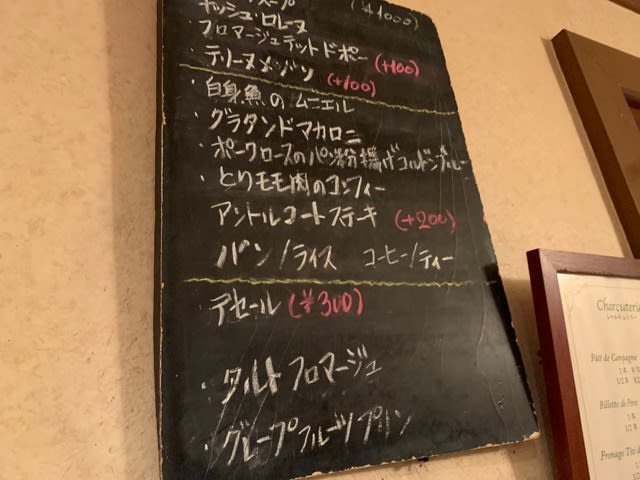 スープ (¥1000)
キッシュ・ロレーヌ
フロマージュテットドポー (+100)
テリーヌメゾン (+100)
・白身魚のムニエル
・グラタンドマカロニ
・ポークロースのパン粉揚げコルドンブルー
・とりモモ肉のコンフィー
アントルコートステーキ (+200)
パン/ライス コーヒー/ティー
・デセール (¥300)
・タルトフロマージュ
・グレープフルーツプリン
Charcuterie
Pâté de Campagne
1本
1/2本
Rillette de Porc
1本
1/2本
Fromage Tête de